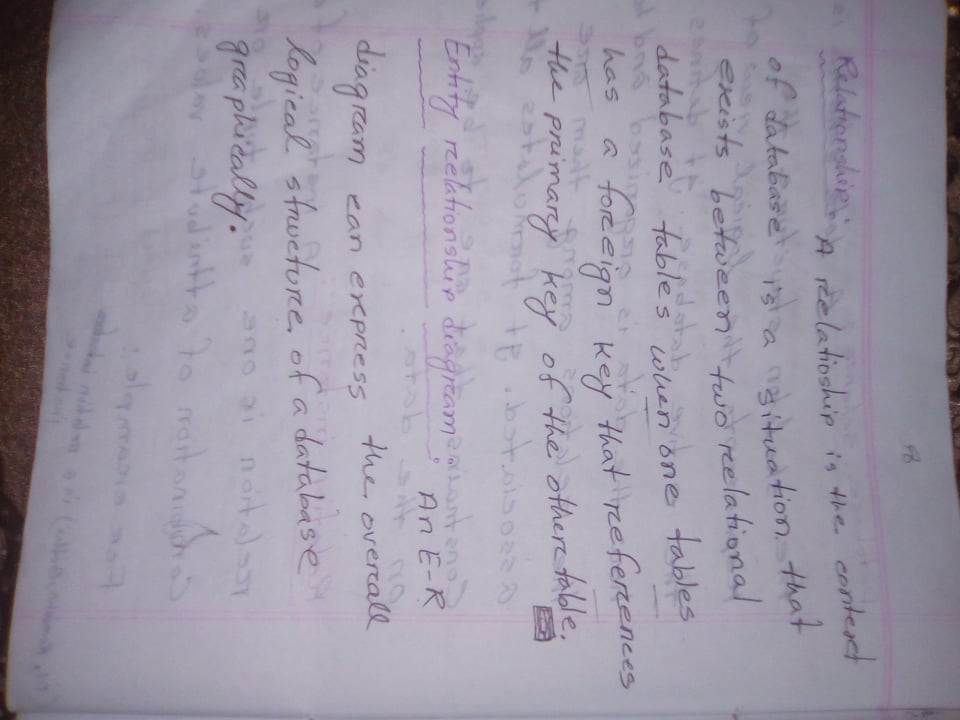 8
Relationship: A relatioship is the context
of database is a situation that
exists between two relational
database tables when one tables
has a foreign key that references
the primary key of the other table.
Entity relationship diagram: An E-R
diagram can express the overall
logical structure of a database
graphically.